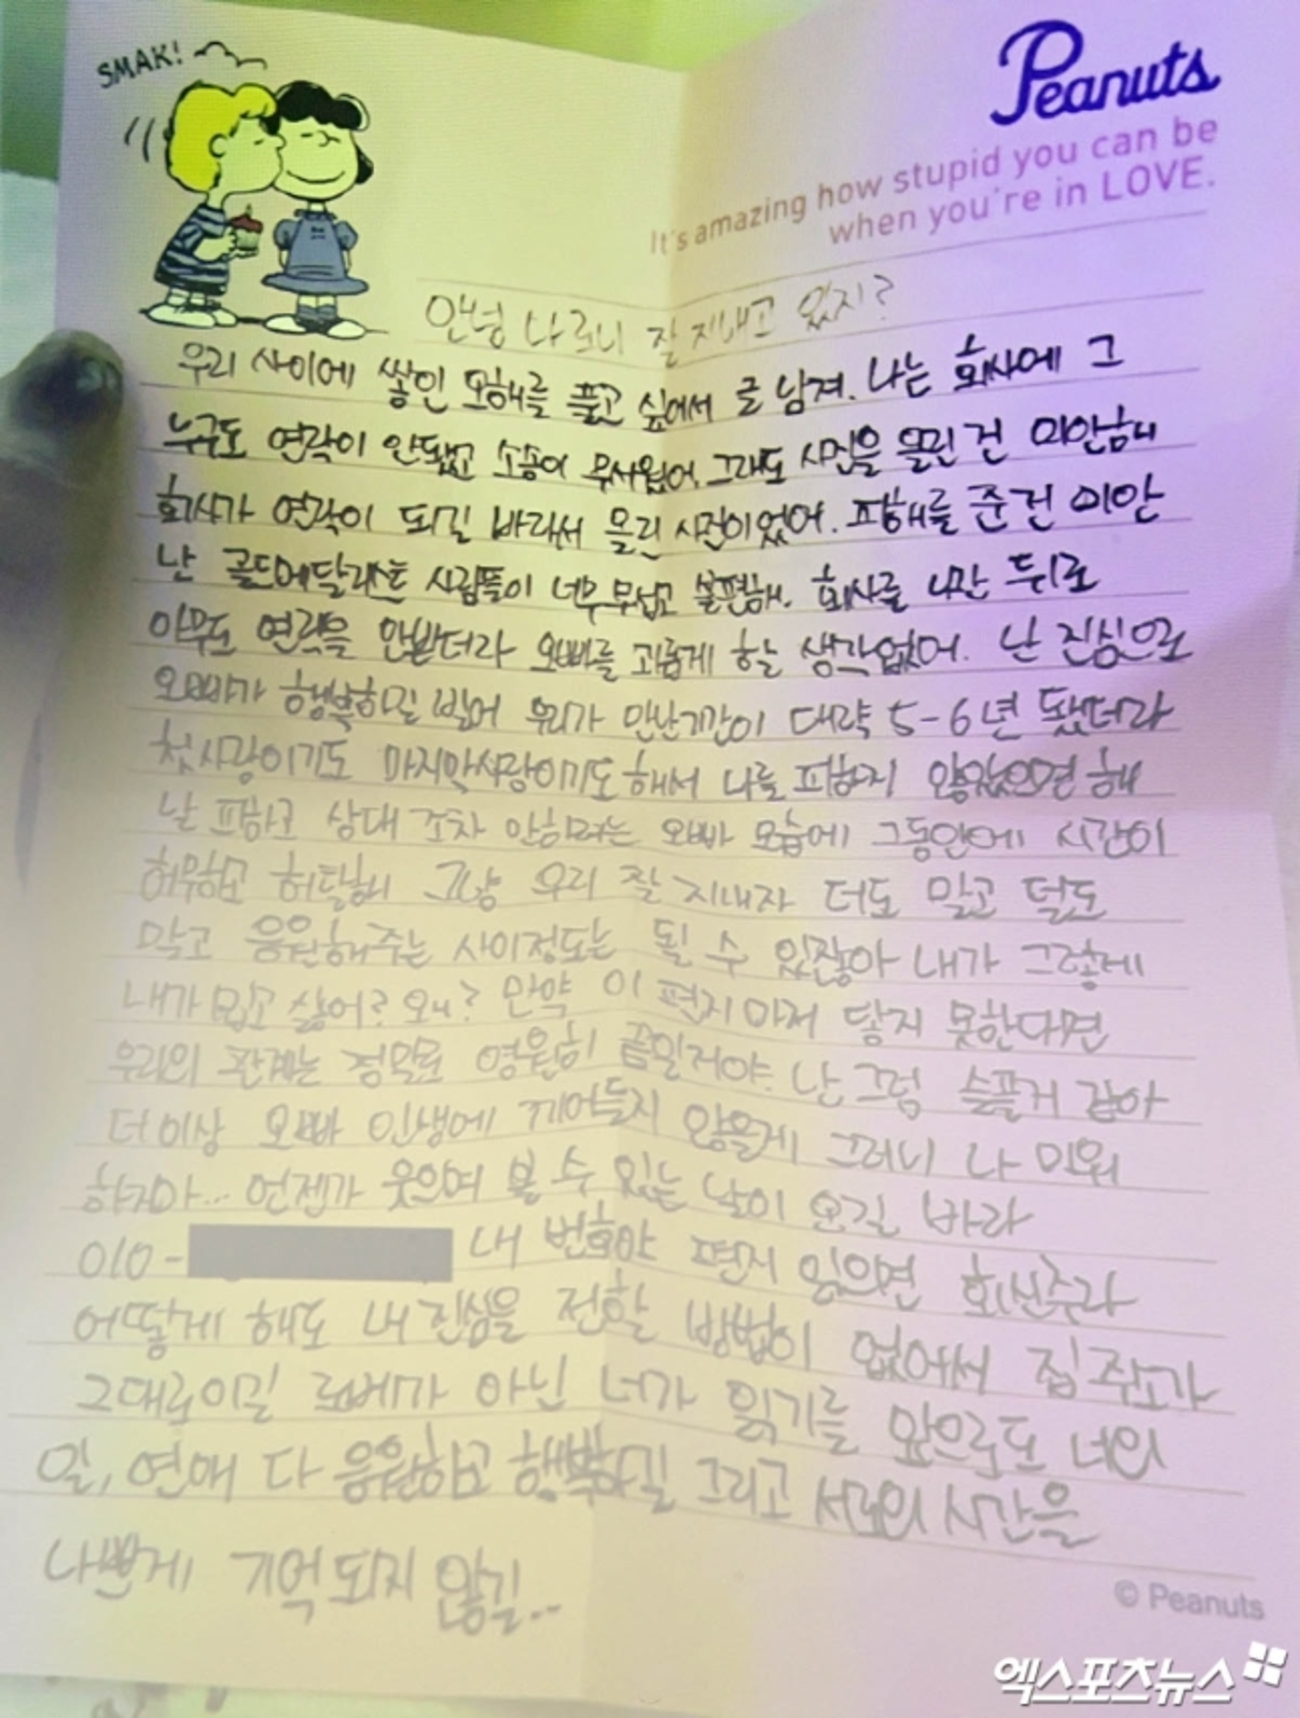 SMAK!
Peanuts
It's amazing how stupid you can be
when you're in LOVE.
안녕 나르니 잘 지내고 있지?
우리 사이에 쌓인 오해를 풀고 싶어서 글 남겨. 나는 회사에 그
누구도 연락이 안됐고 소송이 무서웠어. 그래도 사진을 올린 건 미안해
회사가 연락이 되길 바래서 올린 사진이었어. 피해를 준 건 미안
난 골드메달리스트 사람들이 너무 무섭고 불편해. 회사를 나간 뒤로
아무도 연락을 안받더라 오빠를 괴롭게 할 생각없어. 난 진심으로
오빠가 행복하길 빌어 우리가 만난기간이 대략 5-6년 됐더라
첫사랑이기도 마지막사랑이기도 해서 나를 피하지 않았으면 해
날 피하고 상대 조차 안하려는 오빠 모습에 그동안에 시간이
허무하고 허탈해 그냥 우리 잘 지내자 더도 말고 덜도
말고 응원해주는 사이정도는 될 수 있잖아 내가 그렇게
내가 밉고 싫어? 왜? 만약 이 편지마저 닿지 못한다면
우리의 관계는 정말로 영원히 끝일거야. 난 그럼 슬플거 같아
더이상 오빠 인생에 끼어들지 않을게 그러니 나 미워
하지마... 언젠가 웃으며 볼 수 있는 날이 오길 바라
010- 내 번호야 편지 읽으면 회신주라
어떻게 해도 내 진심을 전할 방법이 없어서 집 주소가
그대로이길 로베가 아닌 너가 읽기를 앞으로도 너의
일, 연애 다 응원하고 행복하길 그리고 서로의 시간을
나쁘게 기억되지 않길...
© Peanuts
엑스포츠뉴스